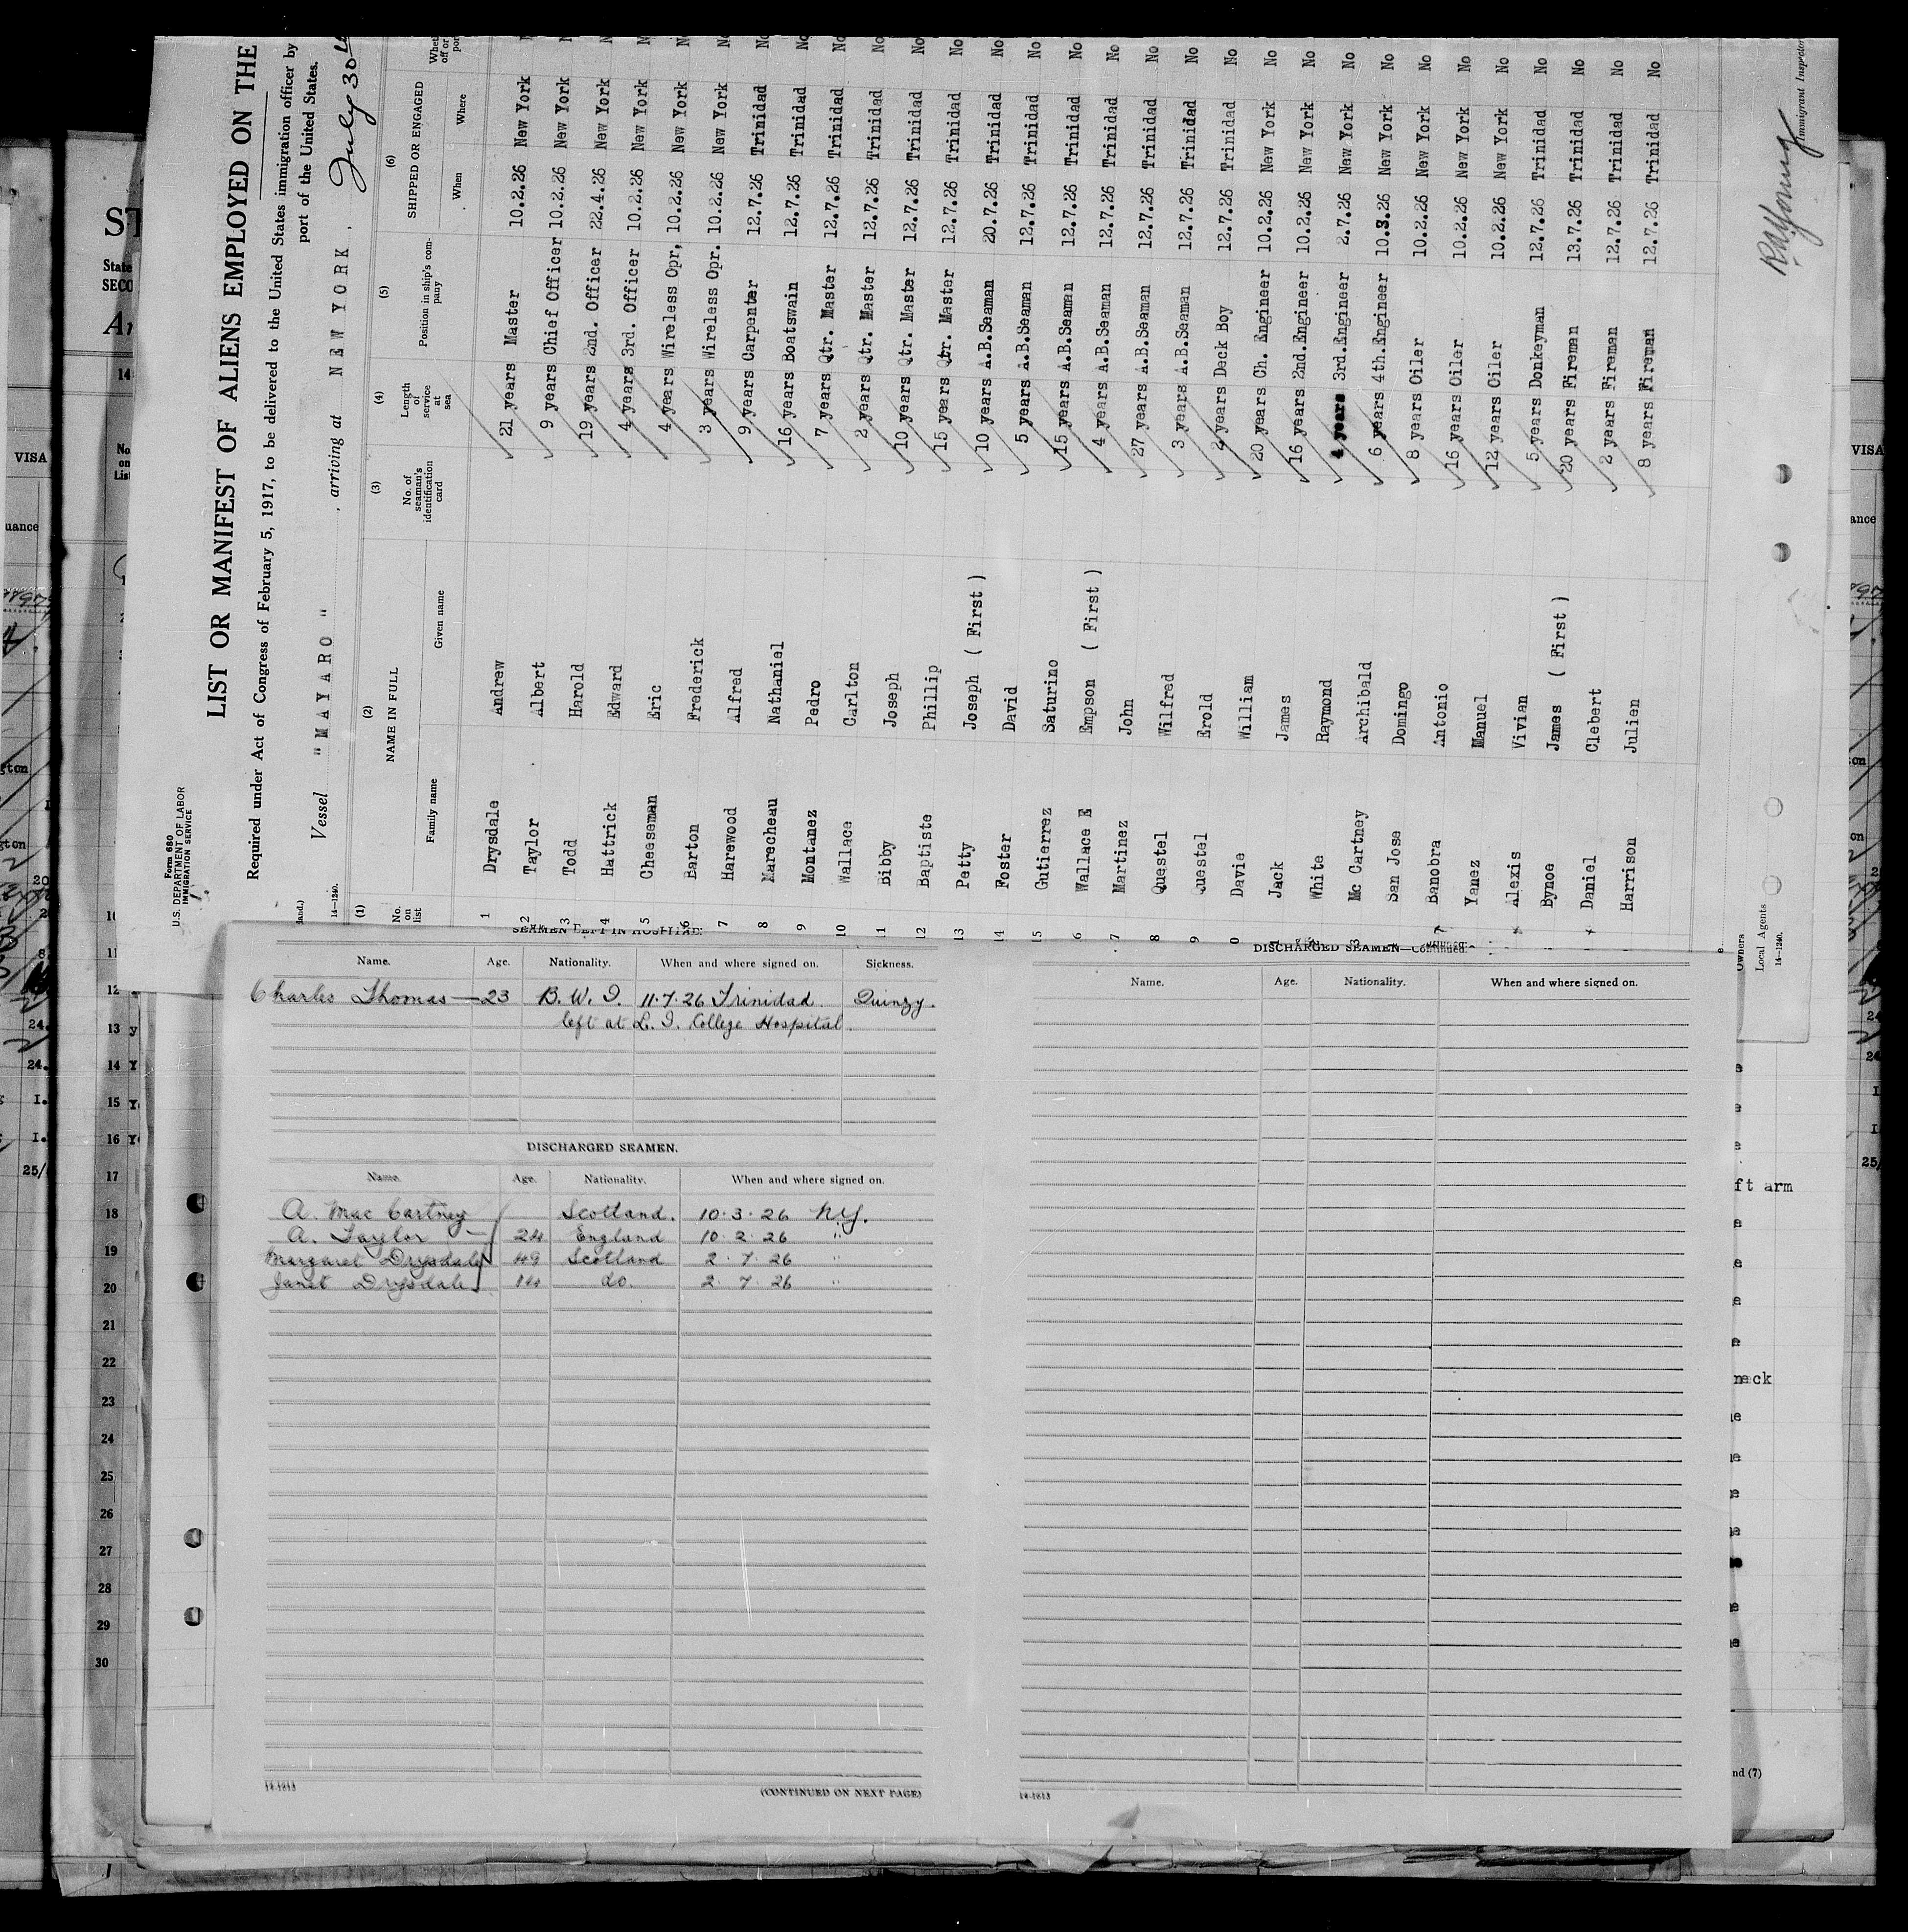 Form 680
U.S. DEPARTMENT OF LABOR
IMMIGRATION SERVICE
LIST OR MANIFEST OF ALIENS EMPLOYED ON THE
Required under Act of Congress of February 5, 1917, to be delivered to the United States immigration officer by
port of the United States.
Vessel "MAYARO" , arriving at NEW YORK, July 30th
14-1240.
(1) (2) (3) (4) (5) (6)
No. on list NAME IN FULL No. of seaman's identification card Length of service at sea Position in ship's company SHIPPED OR ENGAGED
Family name Given name When Where
1 Drysdale Andrew 21 years Master 10.2.26 New York
2 Taylor Albert 9 years Chief Officer 10.2.26 New York
3 Todd Harold 19 years 2nd. Officer 22.4.26 New York
4 Hattrick Edward 4 years 3rd. Officer 10.2.26 New York
5 Cheeseman Eric 4 years Wireless Opr, 10.2.26 New York
6 Barton Frederick 3 years Wireless Opr. 10.2.26 New York
7 Harewood Alfred 9 years Carpenter 12.7.26 Trinidad No
8 Marecheau Nathaniel 16 years Boatswain 12.7.26 Trinidad No
9 Montanez Pedro 7 years Qtr. Master 12.7.26 Trinidad No
10 Wallace Carlton 2 years Qtr. Master 12.7.26 Trinidad No
11 Bibby Joseph 10 years Qtr. Master 12.7.26 Trinidad No
12 Baptiste Phillip 15 years Qtr. Master 12.7.26 Trinidad No
13 Petty Joseph ( First ) 10 years A.B.Seaman 20.7.26 Trinidad No
14 Foster David 5 years A.B.Seaman 12.7.26 Trinidad No
15 Gutierrez Saturino 15 years A.B.Seaman 12.7.26 Trinidad No
6 Wallace E Empson ( First ) 4 years A.B.Seaman 12.7.26 Trinidad No
7 Martinez John 27 years A.B.Seaman 12.7.26 Trinidad No
8 Questel Wilfred 3 years A.B.Seaman 12.7.26 Trinidad No
9 Questel Erold 2 years Deck Boy 12.7.26 Trinidad No
0 Davie William 20 years Ch. Engineer 10.2.26 New York No
Jack James 16 years 2nd.Engineer 10.2.26 New York No
White Raymond years 3rd.Engineer 2.7.26 New York No
3 Mc Cartney Archibald 6 years 4th.Engineer 10.3.26 New York No
San Jose Domingo 8 years Oiler 10.2.26 New York No
Banobra Antonio 16 years Oiler 10.2.26 New York No
Yanez Manuel 12 years Oiler 10.2.26 New York No
Alexis Vivian 5 years Donkeyman 12.7.26 Trinidad No
Bynoe James ( First ) 20 years Fireman 13.7.26 Trinidad No
Daniel Clebert 2 years Fireman 12.7.26 Trinidad No
Harrison Julien 8 years Fireman 12.7.26 Trinidad No
Owners
Local Agents
14-1240.
Immigrant Inspector
SEAMEN LEFT IN HOSPITAL
Name. Age. Nationality. When and where signed on. Sickness.
Charles Thomas 23 B. W. I. 11.7.26 Trinidad Quinzy.
left at L. I. College Hospital.
DISCHARGED SEAMEN.
Name. Age. Nationality. When and where signed on.
A. Mac Cartney Scotland. 10.3.26 N.Y.
A. Taylor 24 England 10.2.26 "
Margaret Drysdale 49 Scotland 2.7.26 "
Janet Drysdale 14 do. 2.7.26 "
14-1813
(CONTINUED ON NEXT PAGE)
DISCHARGED SEAMEN—Continued.
Name. Age. Nationality. When and where signed on.
14-1813
VISA
uance
11
12
13
14
15
16
17
18
19
20
21
22
23
24
25
26
27
28
29
30
ft arm
neck
nd (7)
VISA